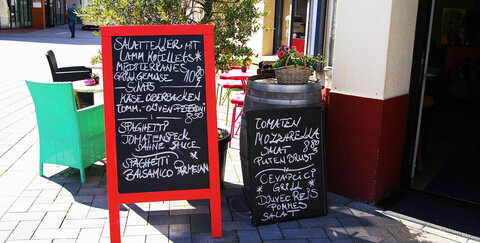 SALATTELLER MIT
LAMM KOTELLETS
MEDITERRANES
GRILLGEMÜSE
SUCUS
KÄSE ÜBERBACKEN
TOMM.-OLIVEN-PEPERONI
8.50
SPAGHETTI
TOMATENSPECK
SAHNE SAUCE
SPAGHETTI
BALSAMICO PARMESAN
TOMATEN
MOZZARELLA
SALAT 8.80
PUTENBRUST
CEVAPCICI
GRILL
DJUVEC REIS
POMMES
SALAT